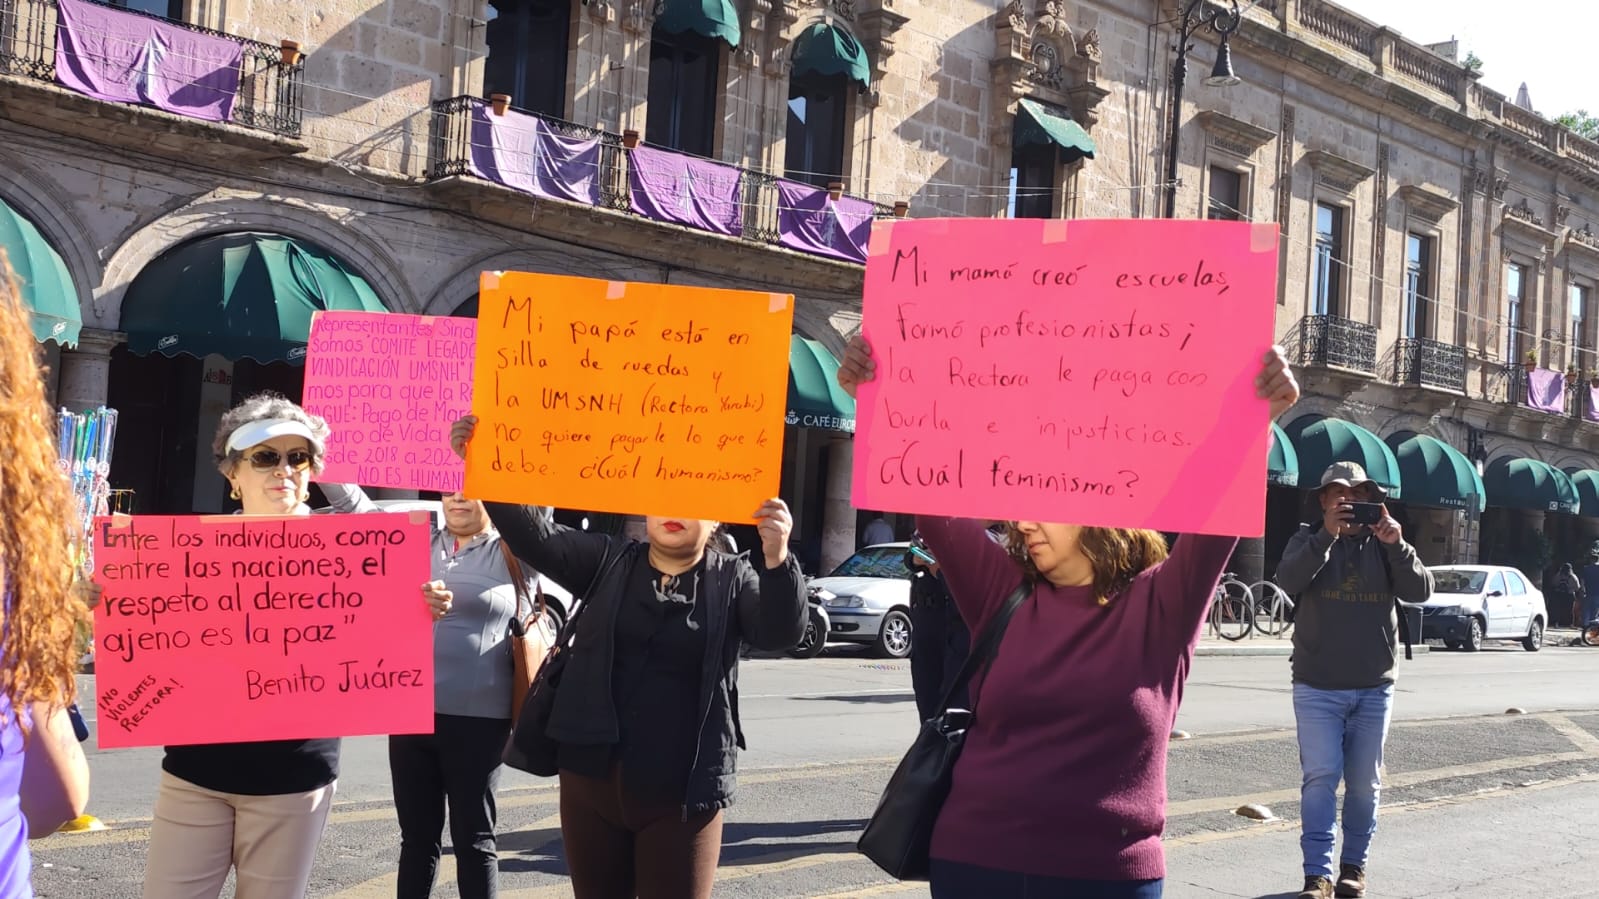 Representantes Sind
Somos "COMITE LEGADO
VINDICACIÓN UMSNH"
mos para que la Re
PAGUE: Pago de Mar
uro de Vida
sde 2018 a 202
NO ES HUMANI
Mi papá está en
silla de ruedas y
la UMSNH (Rectora Yarabi)
no quiere pagarle lo que le
debe. ¿Cuál humanismo?
Mi mamá creó escuelas,
formó profesionistas;
la Rectora le paga con
burla e injusticias.
¿Cuál feminismo?
"Entre los individuos, como
entre las naciones, el
respeto al derecho
ajeno es la paz"
Benito Juárez
¡NO
VIOLENTES
RECTORA!
CAFÉ EUROP
Restau